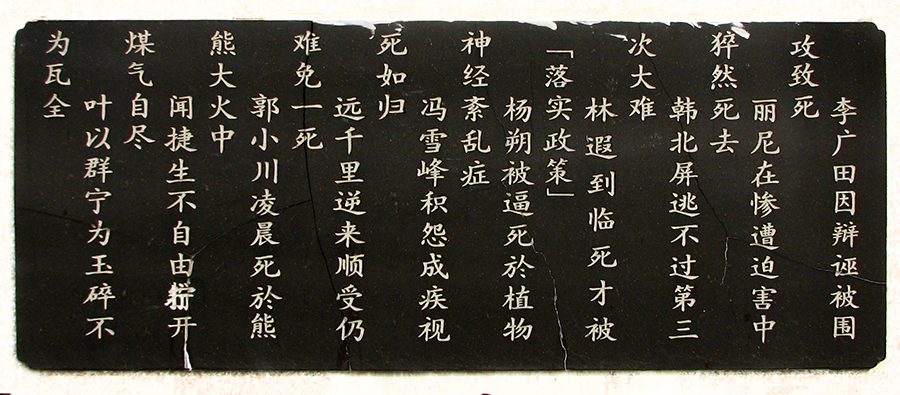 李广田因辩诬被围
攻致死
丽尼在惨遭迫害中
猝然死去
韩北屏逃不过第三
次大难
林遐到临死才被
「落实政策」
杨朔被逼死於植物
神经紊乱症
冯雪峰积怨成疾视
死如归
远千里逆来顺受仍
难免一死
郭小川凌晨死於熊
熊大火中
闻捷生不自由拧开
煤气自尽
叶以群宁为玉碎不
为瓦全